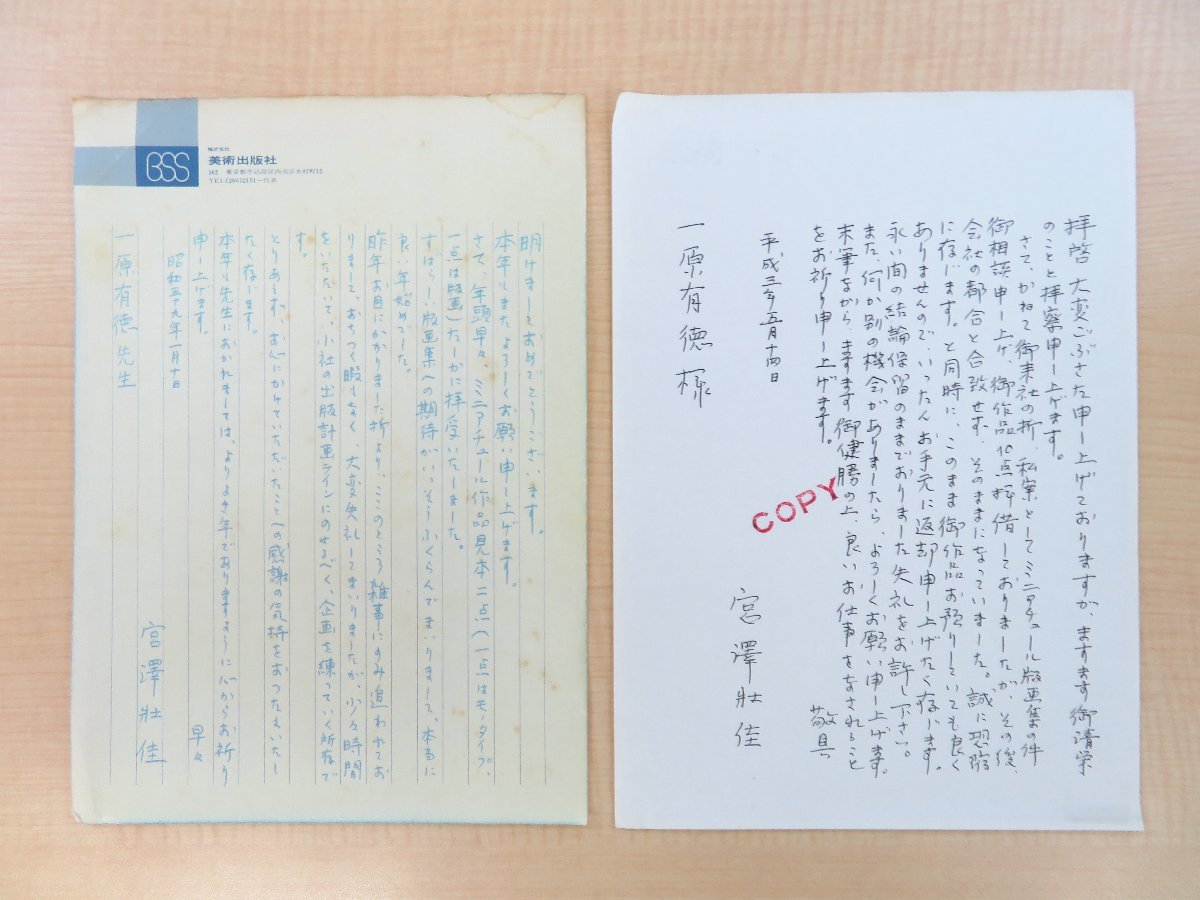 BSS
株式会社
美術出版社
162 東京都新宿区市谷本村町15
TEL(260)2151—代表
明けましておめでとうございます。
本年もまたよろしくお願い申し上げます。
さて、年頭早々、ミニアチュール作品見本二点(一点はモノタイプ、
一点は版画)たしかに拝受いたしました。
すばらしい版画集への期待がいっそうふくらんでまいりまして、本当に
良い年始めでした。
昨年お目にかかりました折より、ここのところ雑事にのみ追われてお
りまして、おちつく暇もなく、大変失礼してまいりましたが、少々時間
をいただいて、小社の出版計画ラインにのせるべく、企画を練っていく所存で
す。
とりあえず、お心にかけていただいたことへの感謝の気持をおつたえいたし
たく存じます。
本年も先生におかれましては、よりよき年でありますように心からお祈り
申し上げます。
早々
昭和五十九年一月十日
宮澤壯佳
一原有徳先生
拝啓 大変ごぶさた申し上げておりますが、ますます御清栄
のことと拝察申し上げます。
さて、かねて御来社の折、私案としてミニアチュール版画集の件
御相談申し上げ、御作品10点拝借しておりましたが、その後、
会社の都合と合致せず、そのままになっていました。誠に恐縮
に存じます。と同時に、このまま御作品お預りしていても良く
ありませんので、いったんお手元に返却申し上げたく存じます。
永い間の結論保留のままでおりました失礼をお許し下さい。
また、何か別の機会がありましたら、よろしくお願い申し上げます。
末筆ながら、ますます御健勝の上、良いお仕事をなされること
をお祈り申し上げます。
敬具
平成三年五月十四日
宮澤壯佳
一原有徳様
COPY